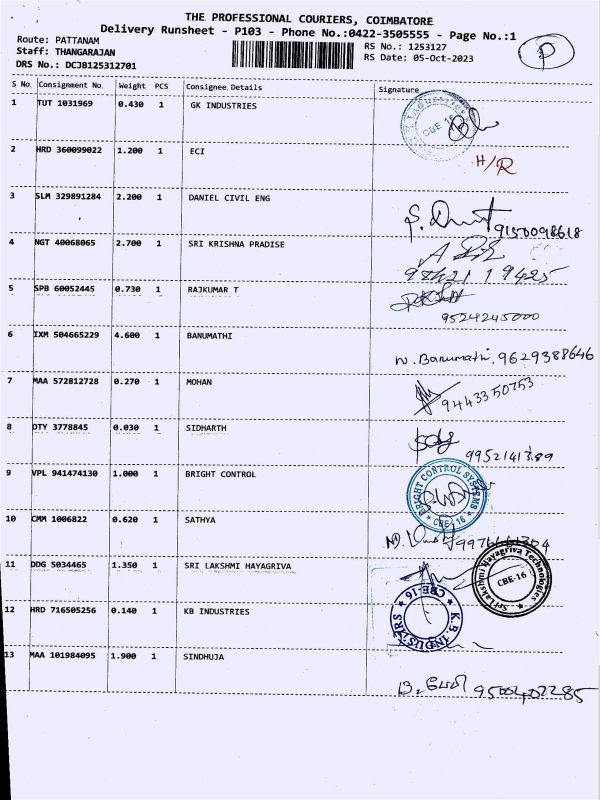 THE PROFESSIONAL COURIERS, COIMBATORE
Delivery Runsheet - P103 - Phone No.:0422-3505555 - Page No.:1
Route: PATTANAM
RS No.: 1253127
P
Staff: THANGARAJAN
RS Date: 05-Oct-2023
DRS No.: DCJB125312701
S No. Consignment No. Weight PCS Consignee Details Signature
1 TUT 1031969 0.430 1 GK INDUSTRIES
CBE 16
2 HRD 360099022 1.200 1 ECI
H/R
3 SLM 329891284 2.200 1 DANIEL CIVIL ENG
9150098618
4 NGT 40068065 2.700 1 SRI KRISHNA PRADISE
5 SPB 60052445 0.730 1 RAJKUMAR T
9524245000
6 IXM 504665229 4.600 1 BANUMATHI
N. Banumathi. 9629388646
7 MAA 572812728 0.270 1 MOHAN
9443350753
8 OTY 3778845 0.030 1 SIDHARTH
9952141389
9 VPL 941474130 1.000 1 BRIGHT CONTROL
BRIGHT CONTROL SYSTEMS
CBE-16
10 CMM 1006822 0.620 1 SATHYA
11 DDG 5034465 1.350 1 SRI LAKSHMI HAYAGRIVA
Sri Lakshmi Hayagriva Technologies
CBE-16
12 HRD 716505256 0.140 1 KB INDUSTRIES
K.B. INDUSTRIES
CBE-16
13 MAA 101984095 1.900 1 SINDHUJA